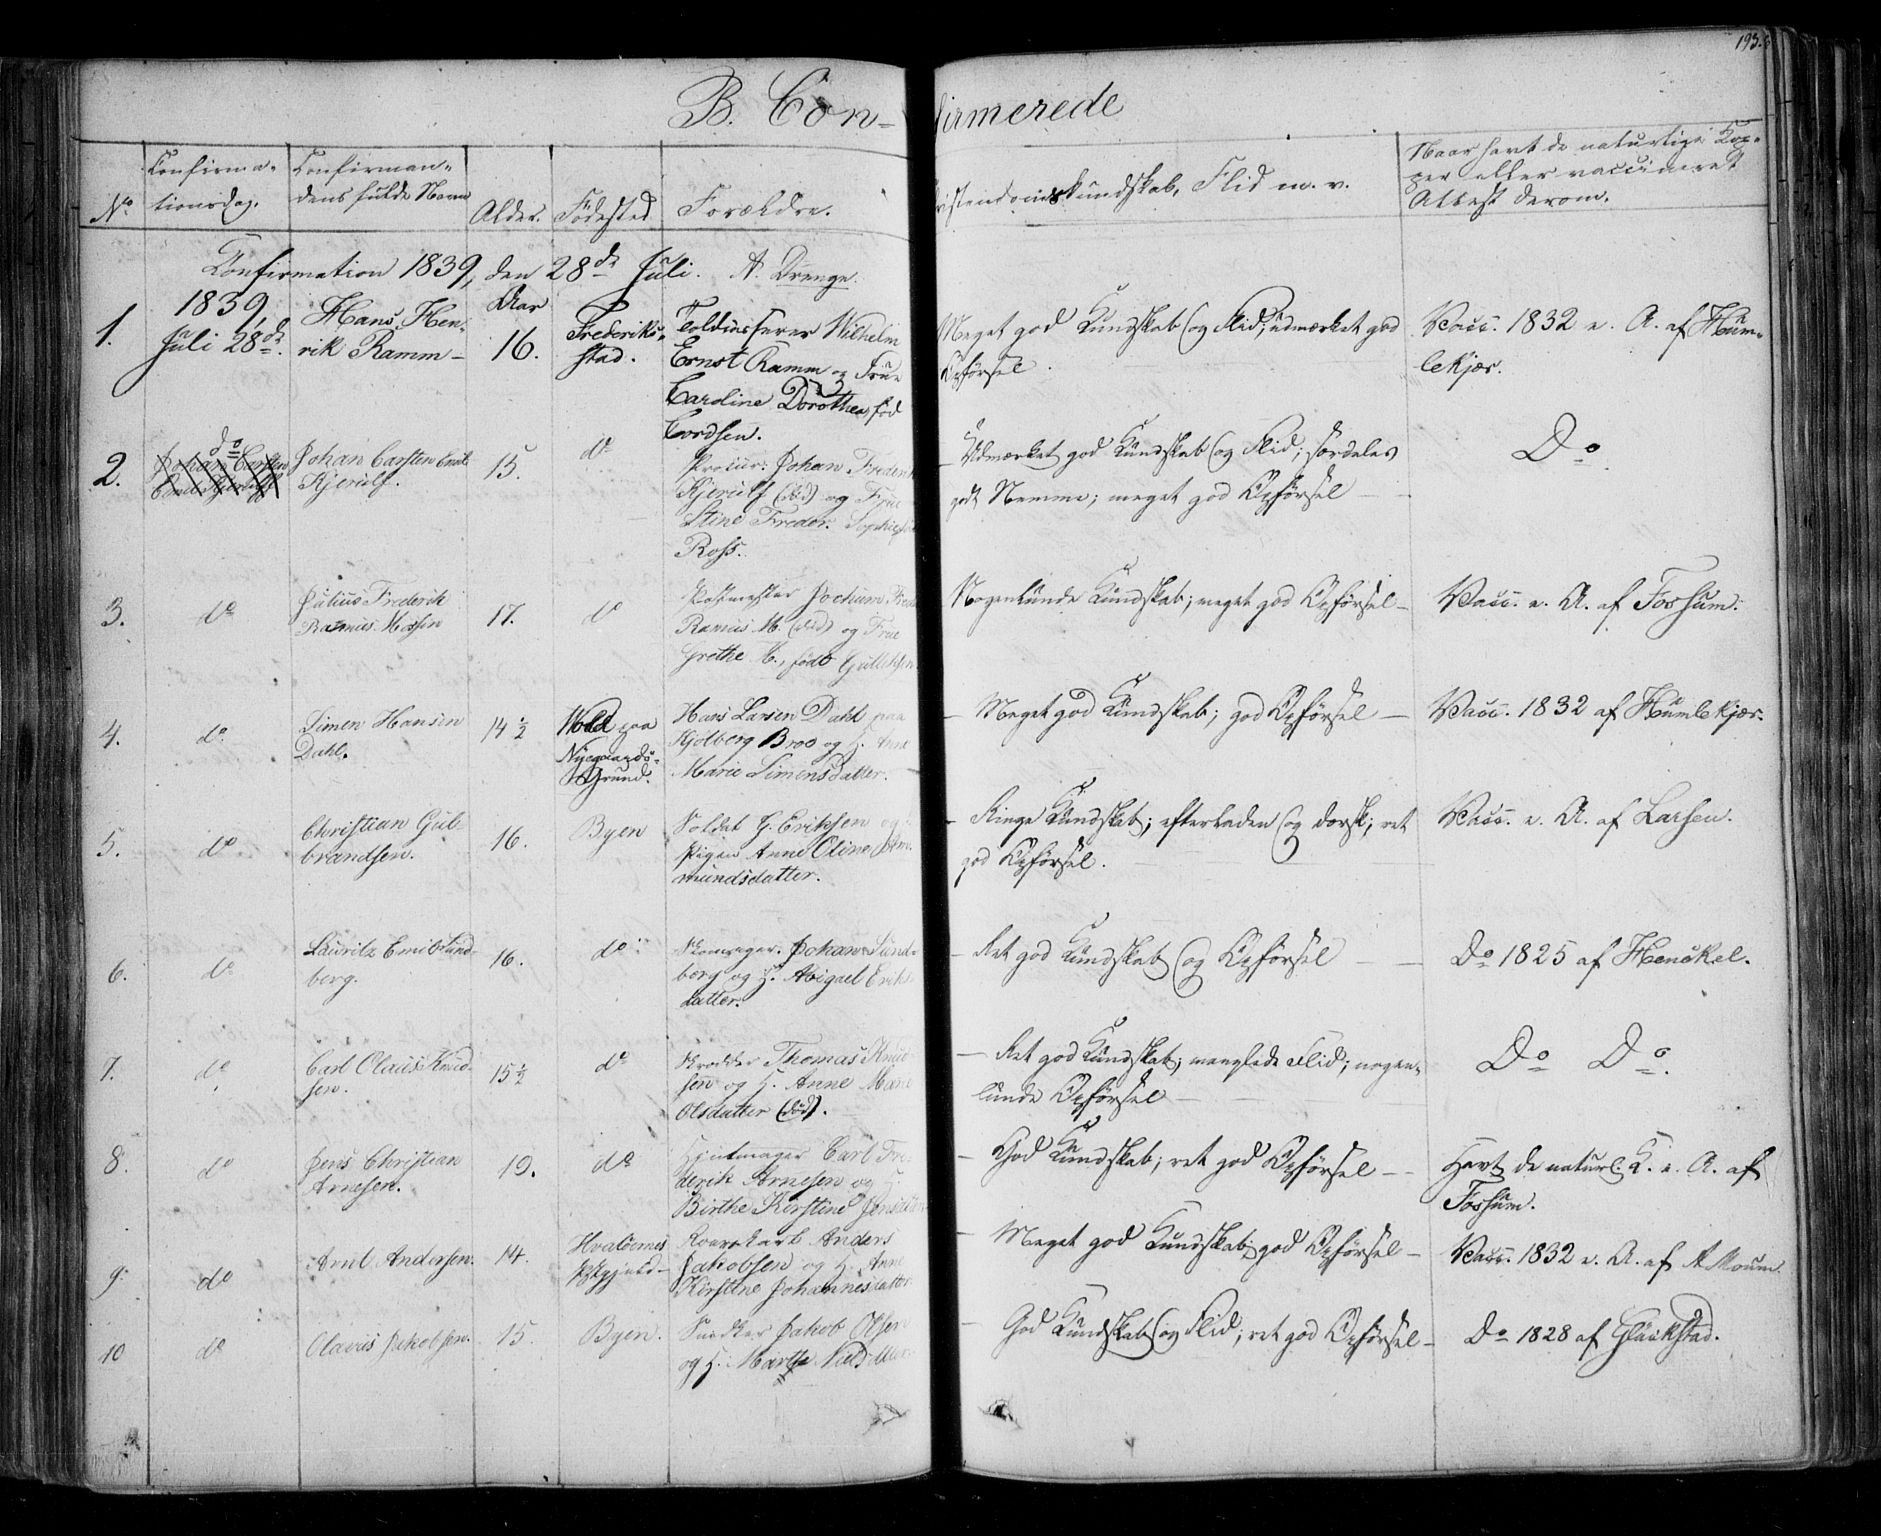 193.
B. Con-firmerede
No
Confirma-
tionsdag.
Confirman-
dens fulde Navn
Alder.
Fødested
Forældre.
Christendomskundskab, Flid m. v.
Naar havt de naturlige Kop-
per eller vaccineret
Attest derom.
Confirmation 1839, den 28de Juli. A. Drenge.
1.
1839,
Juli 28de.
Hans Hen-
rik Ramm
Aar
16.
Frederiks-
stad.
Toldinspecteur Wilhelm
Ernst Ramm og Frue
Caroline Dorothea, fød
Cordsen.
Meget god Kundskab og Flid; udmærket god
Opførsel.
Vacc. 1832 e. A. af Hum-
lekjær.
2.
do
Johan Carsten
Emil Kjerulf
Johan Carsten Emil
Kjerulf.
15.
do
Procur: Johan Frederik
Kjerulf (død) og Frue
Stine Freder. Sophie, fød
Ross.
Udmærket god Kundskab og Flid; særdeles
godt Nemme; meget god Opførsel
Do.
3.
do
Julius Frederik
Rasmus Mossin
17.
do
Postmester Jochum Fred
Rasmus M. (død) og Frue
Grethe M., født Gullichsen
Nogenlunde Kundskab; meget god Opførsel
Vacc. e. A. af Fossum.
4.
do
Simen Hansen
Dahl.
14 1/2
Vold paa
Nygaards-
Grund.
Hans Larsen Dahl paa
Kjølberg Bro og H. Anne
Marie Simensdatter.
Meget god Kundskab; god Opførsel
Vacc. 1832 af Humlekjær.
5.
do
Christian Gul-
brandsen.
16.
Byen
Soldat G. Eriksen og
Pigen Anne Oline Am-
mundsdatter.
Ringe Kundskab; efterladen og dorsk; ret
god Opførsel.
Vacc. e. A. af Larsen.
6.
do
Lauritz Emil Sund-
berg.
16.
do
Skomager. Johan Sund-
berg og H. Abigael Eriks-
datter.
Ret god Kundskab og Opførsel
Do 1825 af Henckel.
7.
do
Carl Olaus Knud-
sen.
15 1/2
do
Skrædder Thomas Knud-
sen og H. Anne Marie
Olsdatter (død).
Ret god Kundskab; manglede Flid; nogen-
lunde Opførsel
Do Do.
8.
do
Jens Christian
Arnesen.
19.
do
Carl Fre-
derik Arnesen og H.
Birthe Kirstine Jensdatter
God Kundskab; ret god Opførsel
Havt de naturl. K. e. A. af
Fossum.
9.
do
Arnt Andersen.
14.
Hvaløernes
Prgjeld
Anders
Jakobsen og H. Anne
Kirstine Johannesdatter
Meget god Kundskab; god Opførsel
Vacc. 1832 e. A. af A Moum.
10
do
Olavus Jakobsen.
15.
Byen.
Snedker Jakob Olsen
og H. Marthe Nielsdatter
God Kundskab og Flid; ret god Opførsel
Do 1828 af Glückstad.